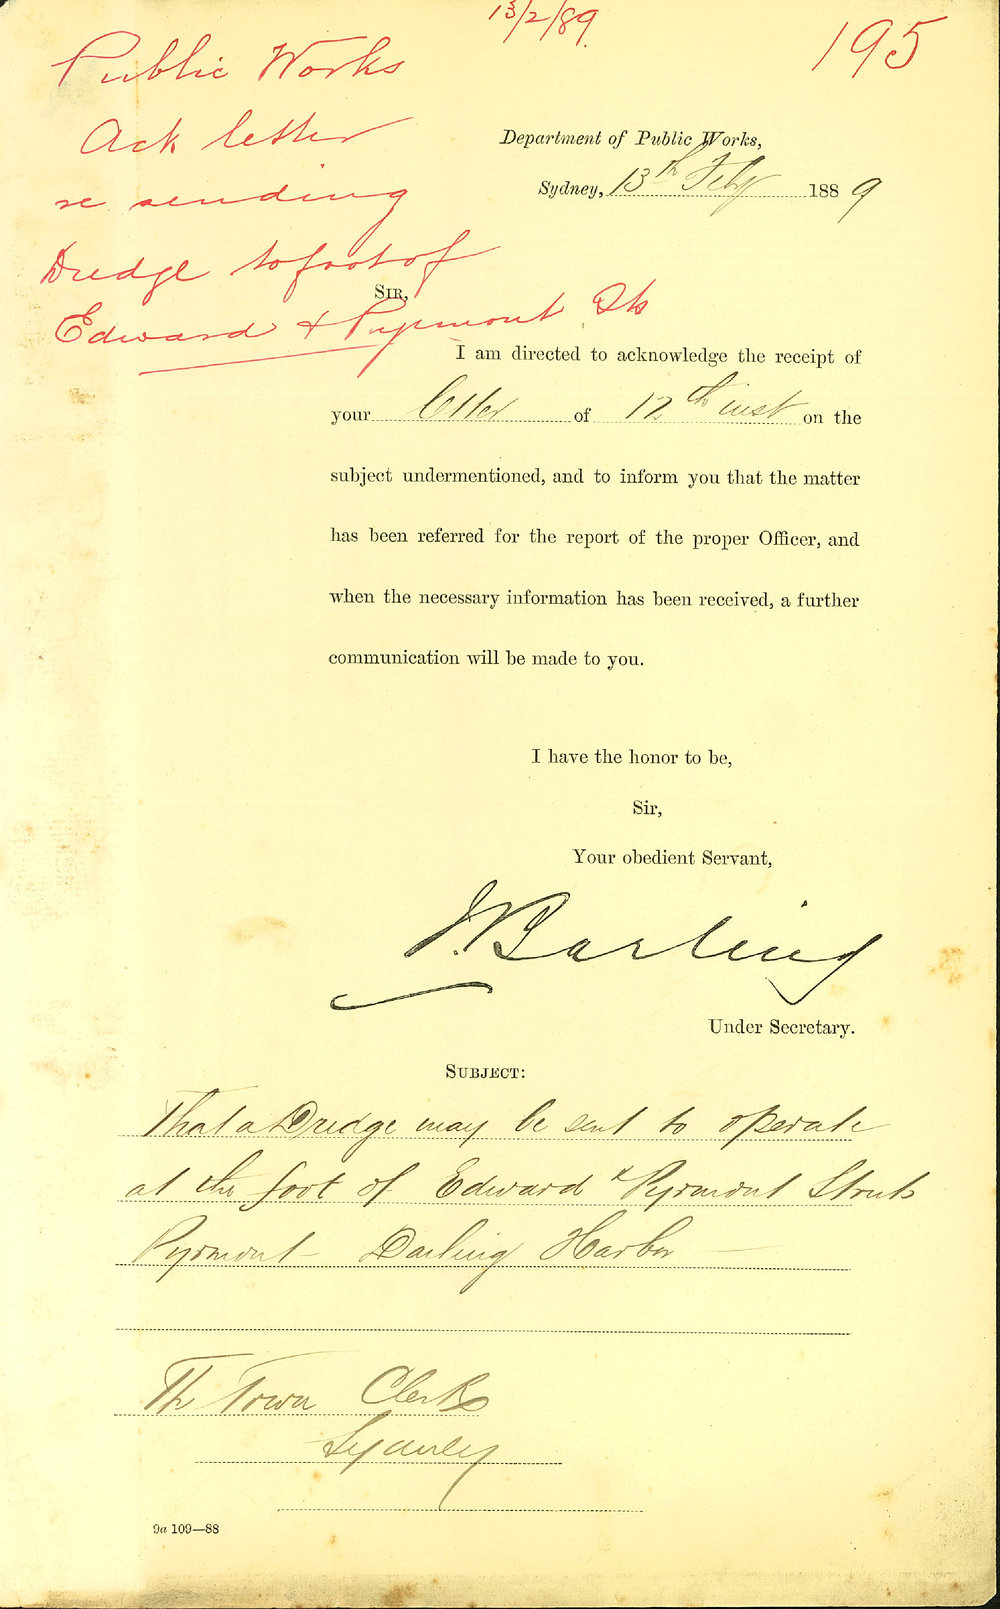 13/2/89
195
Public Works
Ack letter
re sending
Dredge to foot of
Edward & Pyrmont Sts
Department of Public Works,
Sydney, 13th Feby 1889
SIR,
I am directed to acknowledge the receipt of
your letter of 12th inst on the
subject undermentioned, and to inform you that the matter
has been referred for the report of the proper Officer, and
when the necessary information has been received, a further
communication will be made to you.
I have the honor to be,
Sir,
Your obedient Servant,
J. Barling
Under Secretary.
SUBJECT:
That a Dredge may be sent to operate
at the foot of Edward & Pyrmont Streets
Pyrmont - Darling Harbor -
The Town Clerk
Sydney
9a 109—88